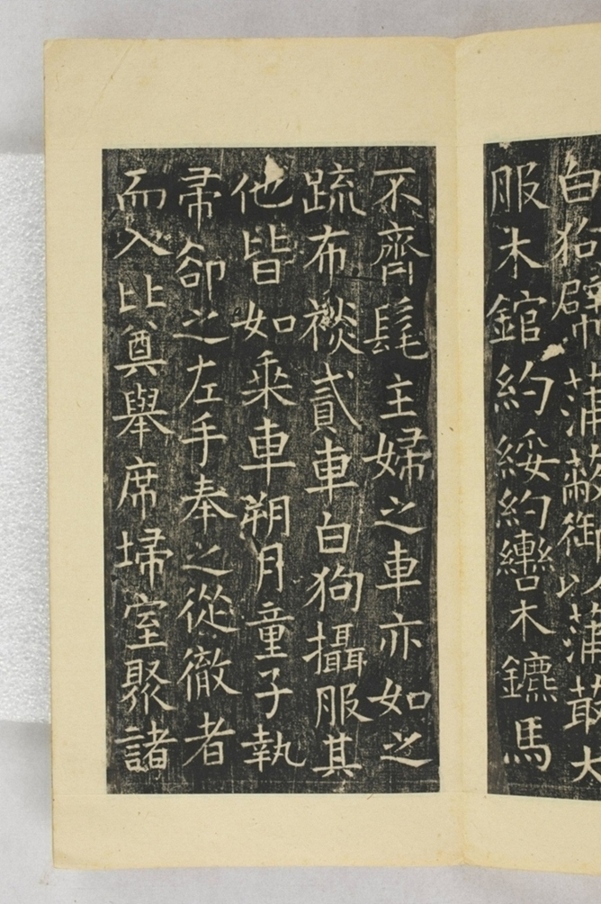 白狗幦蒲蔽御以蒲菆犬
服木錧約綏約轡木鑣馬
不齊髦主婦之車亦如之
疏布裧貳車白狗攝服其
他皆如乘車朔月童子執
帚卻之左手奉之從徹者
而入比奠舉席埽室聚諸